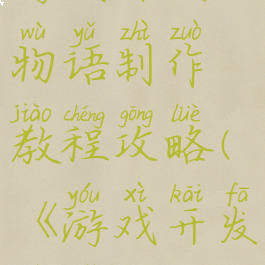 wù yǔ zhì zuò
物语制作
jiào chéng gōng lüè
教程攻略(
yóu xì kāi fā
《游戏开发